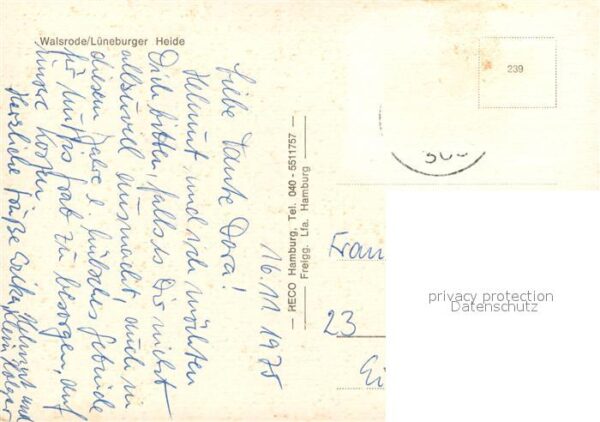 Walsrode/Lüneburger Heide
16.11.1975
Liebe Tante Dora!
Helmut und ich möchten
Dich bitten, falls es Dir nicht
allzuviel ausmacht, auch in
diesem Jahre e. hübsches Gebinde
für Muttis Grab zu besorgen, auf
unsere Kosten.
Herzliche Grüße Erika, Helmut und
klein Holger
— RECO Hamburg, Tel. 040 - 5511757 —
Freigg. Lfa. Hamburg
239
Frau
23
privacy protection
Datenschutz